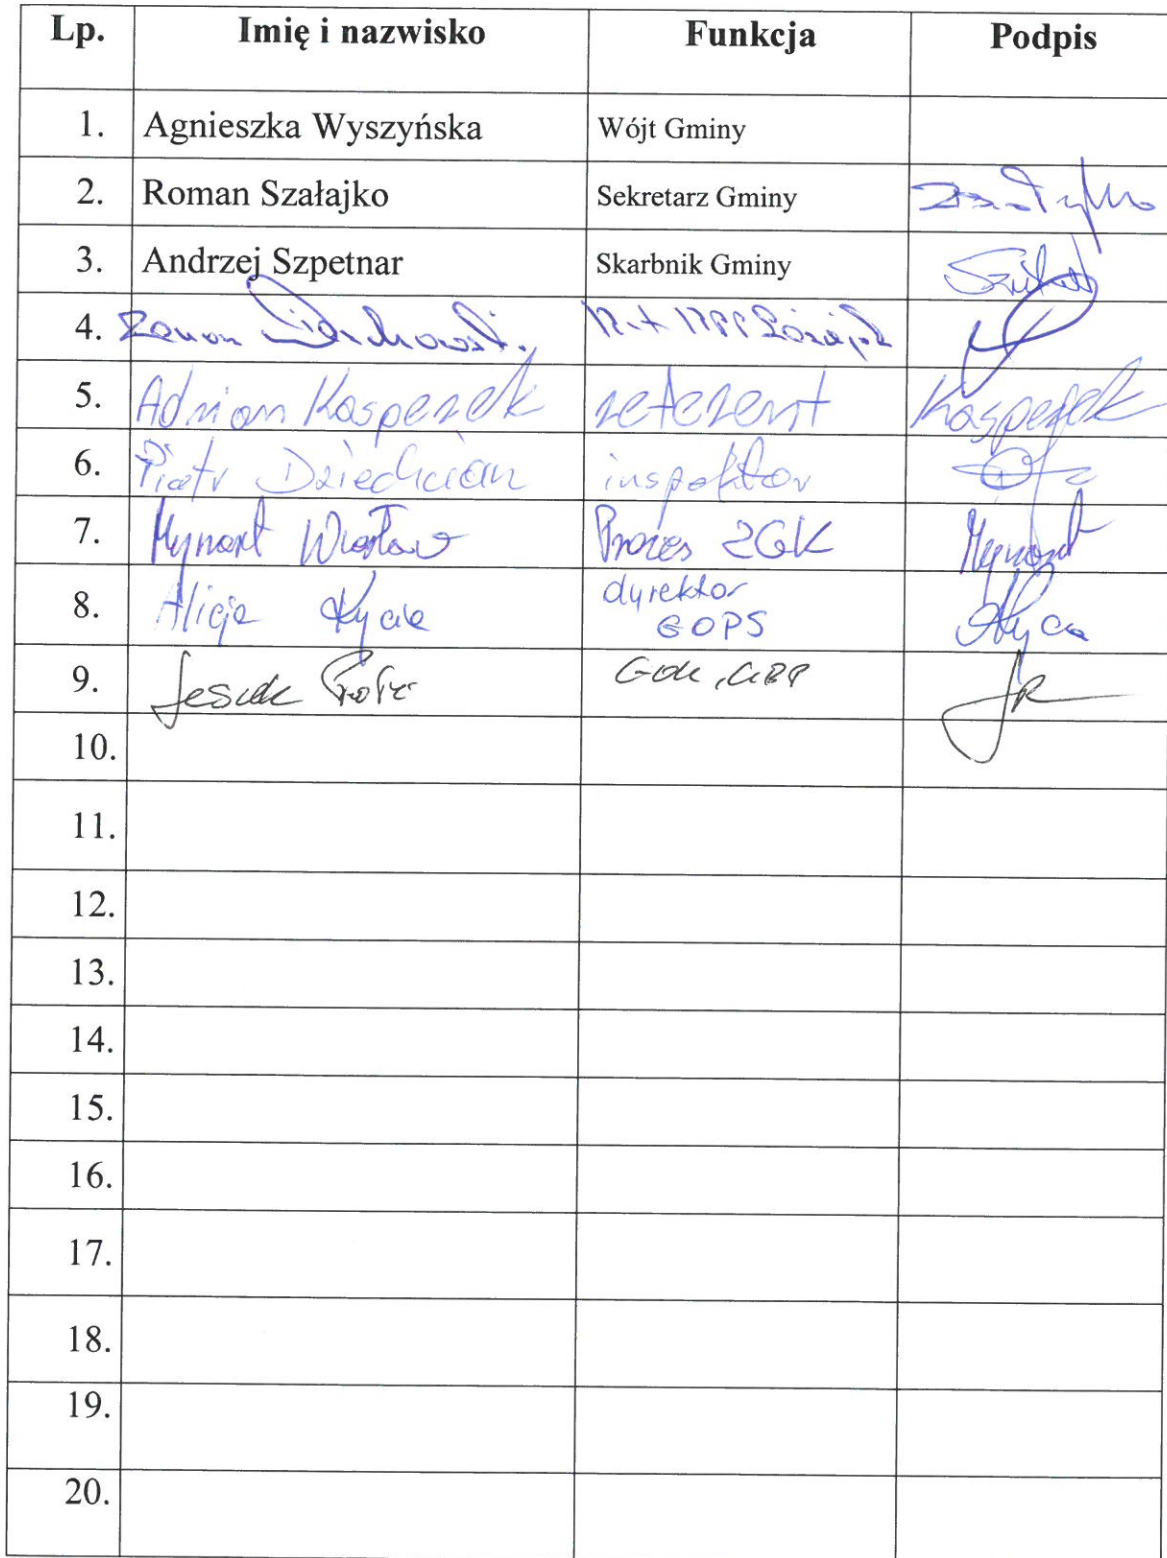 Lp. Imię i nazwisko Funkcja Podpis
1. Agnieszka Wyszyńska Wójt Gminy
2. Roman Szałajko Sekretarz Gminy
3. Andrzej Szpetnar Skarbnik Gminy
4. Zenon
5. Adrian Kasperek referent Kasperek
6. Piotr Dziechcian inspektor
7. Mynart Wiesław Prezes ZGK Mynart
8. Alicja Kycia dyrektor
GOPS
9. GOK, GBP
10.
11.
12.
13.
14.
15.
16.
17.
18.
19.
20.